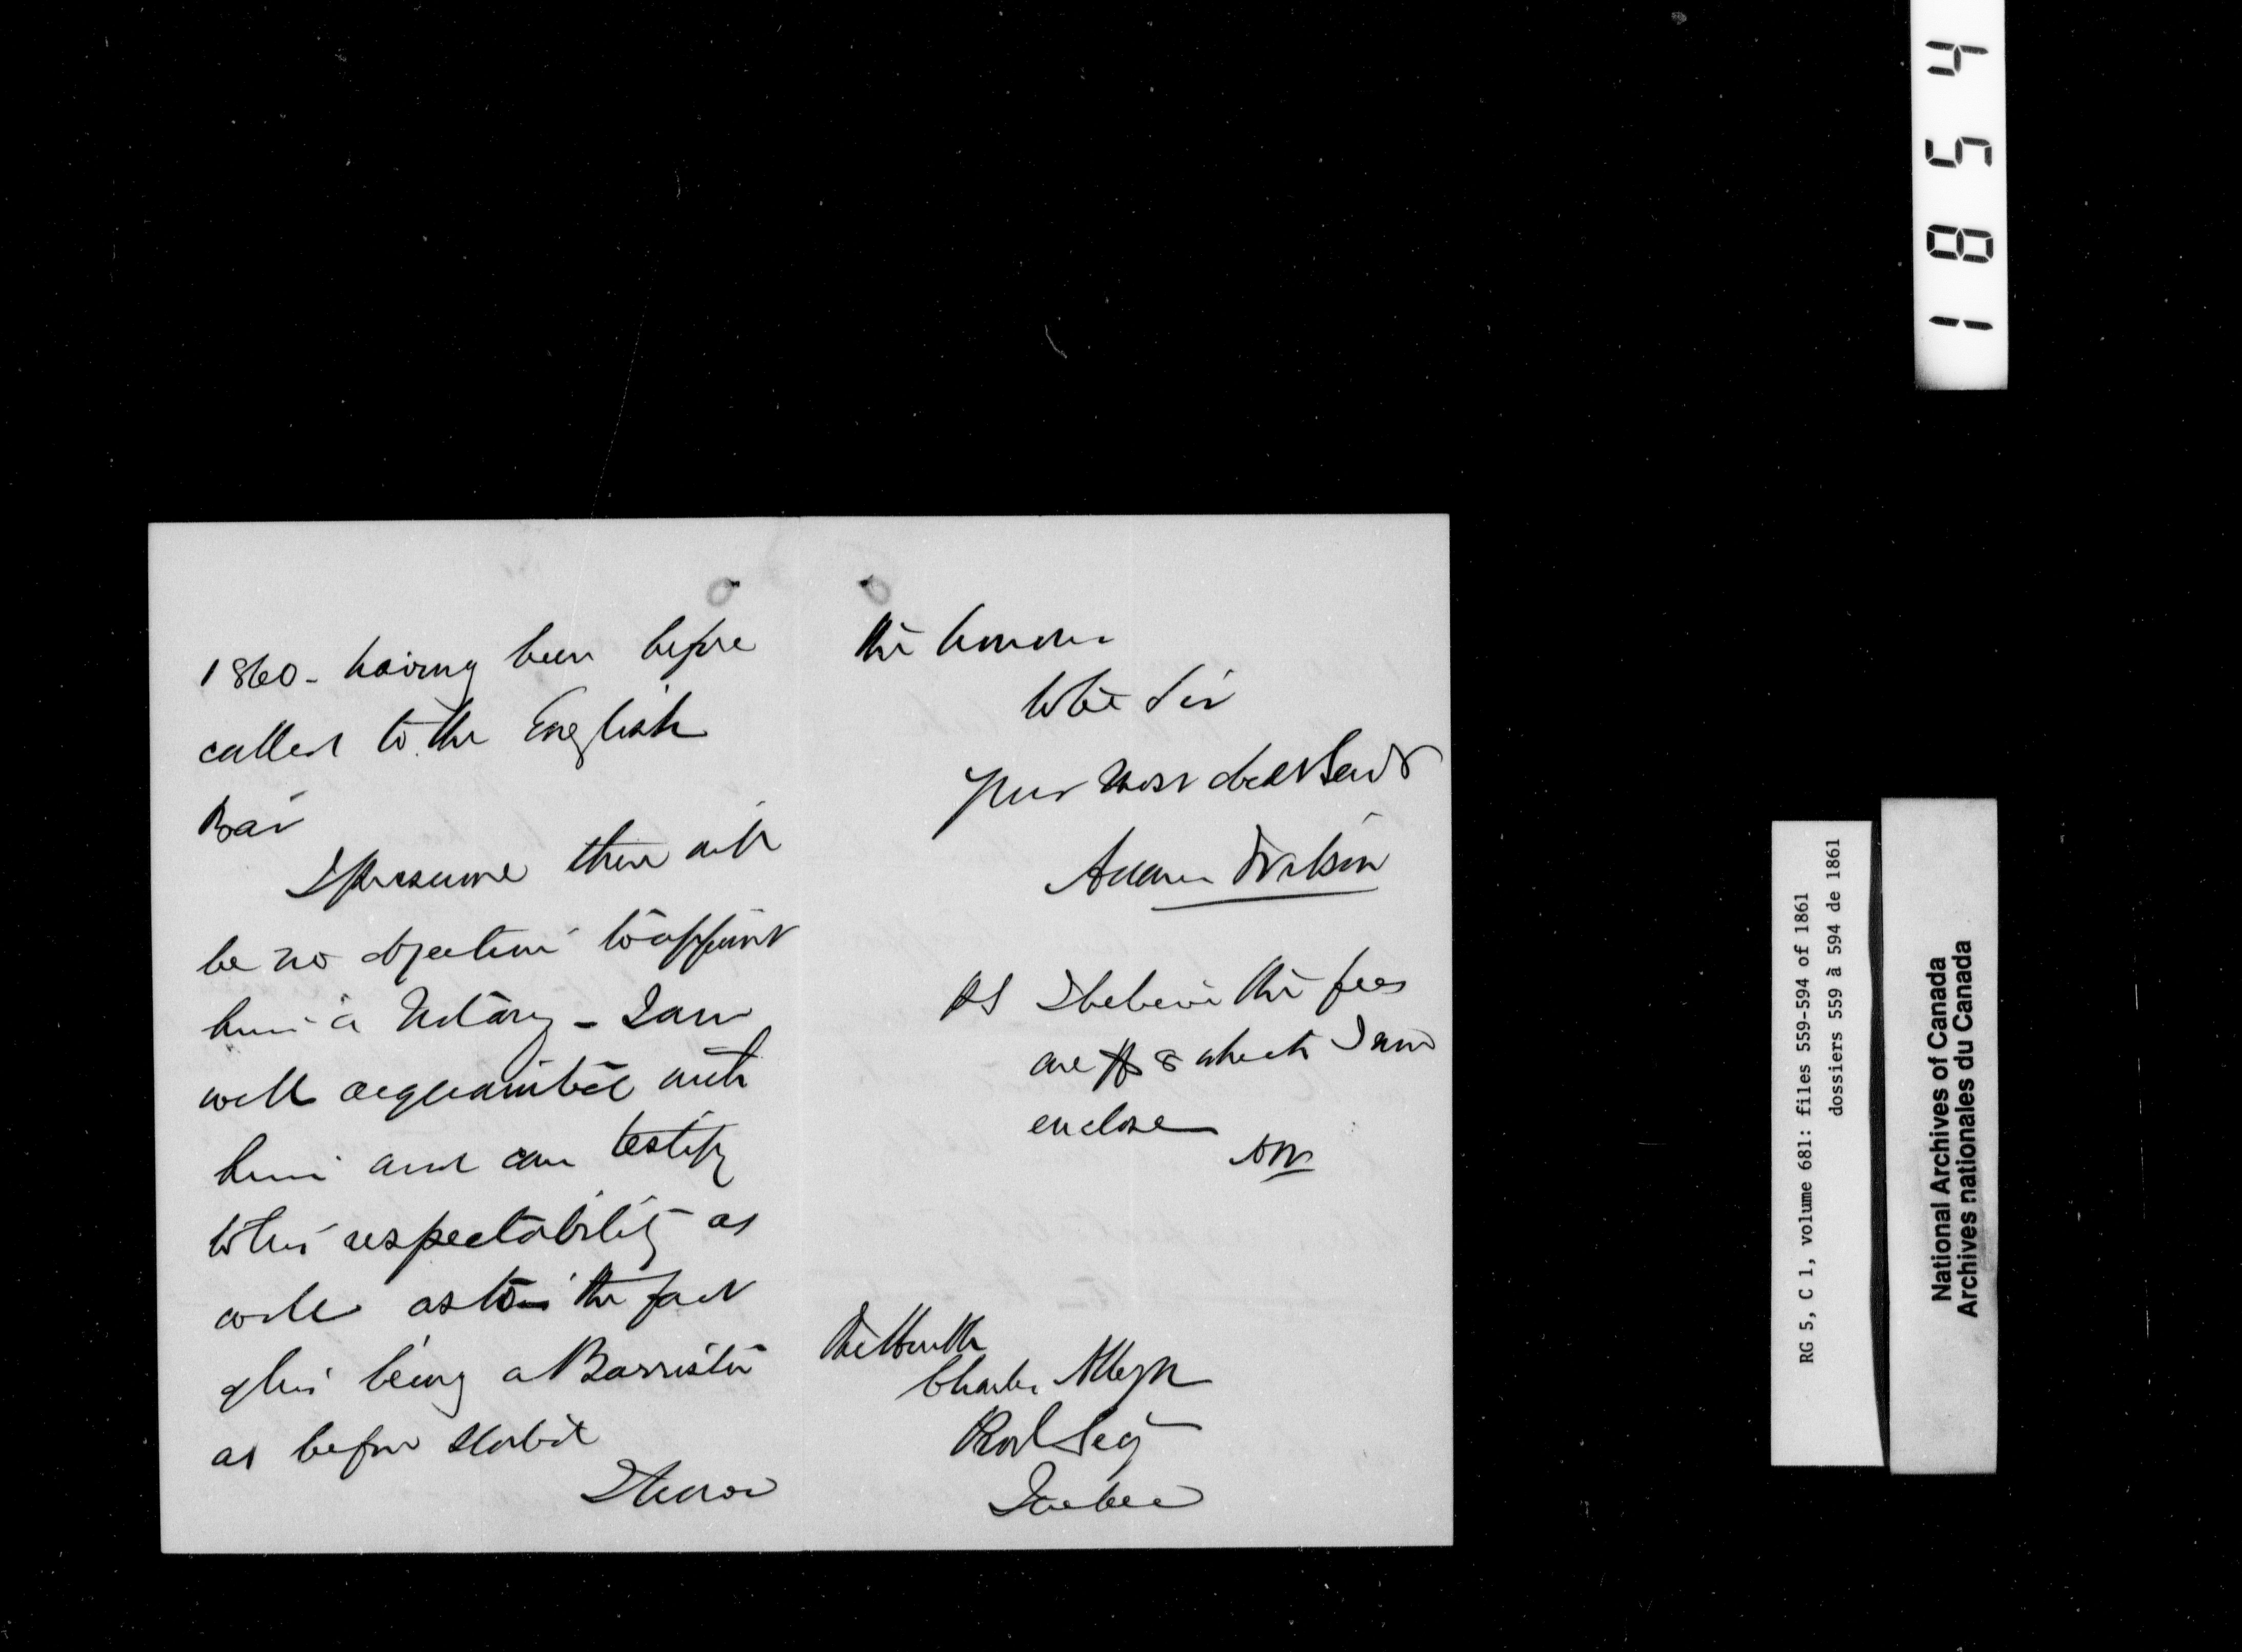 1860 - having been before
called to the English
Bar
I presume there will
be no objection to appoint
him a Notary - I am
well acquainted with
him and can testify
to his respectability as
well as to the fact
of his being a Barrister
as before stated
I have
the honour
to be Sir
Your most obedt Servt
Adam Wilson
PS I believe the fees
are $8 which I now
enclose
AW
The Honble
Charles Alleyn
Provl Secy
Quebec
1854
RG 5, C 1, volume 681: files 559-594 of 1861
dossiers 559 à 594 de 1861
National Archives of Canada
Archives nationales du Canada